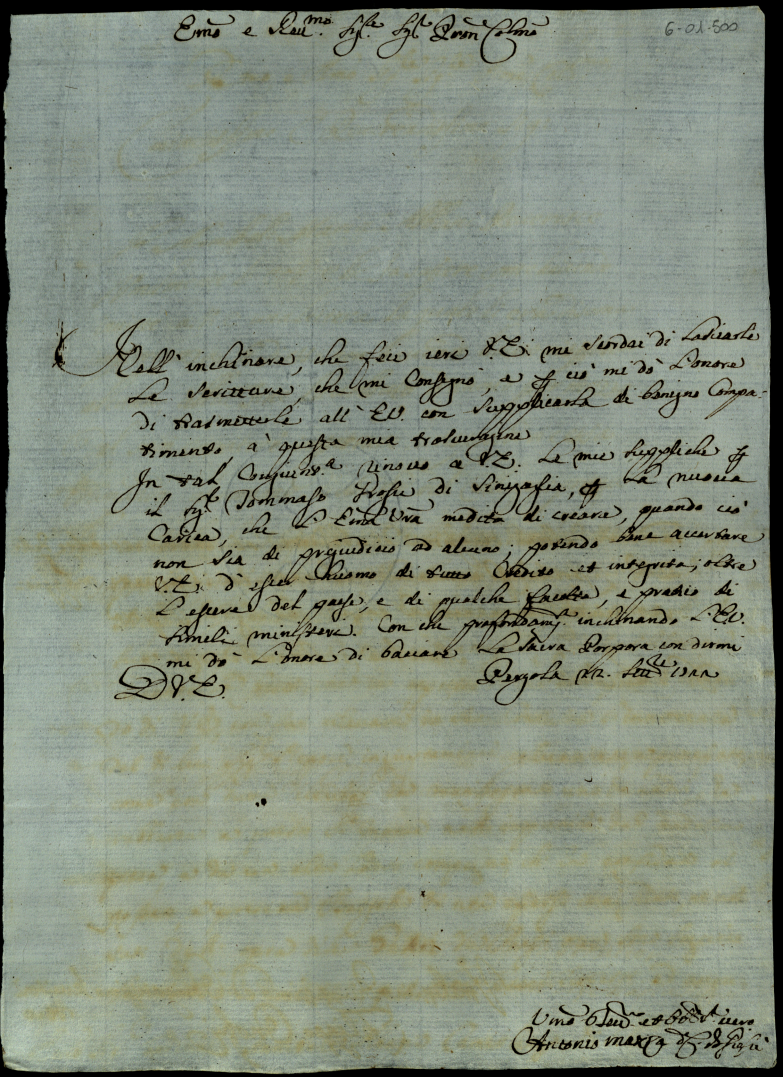 6-01-500
Emo e Reumo. Sigre. Sigr. Pron Colmo
Nell' inchinare, che feci ieri V.E. mi scordai di lasciarle
le scritture, che mi consegnò, e ꝑ ciò mi dò l'onore
di trasmetterle all' E.V. con supplicarla di benigno compa-
timento, à questa mia trascuragine
In tal congiuntra rinovo a V.E. le mie suppliche ꝑ
il Sigr. Tommaso di Sinigaglia, ꝑ la nuova
Carica, che l'Emã Vrã medita di creare, quando ciò
non sia di pregiudicio ad alcuno; potendo bene accertare
V.E. d' esser huomo di tutto credito et integrità; oltre
l'essere del paese, e di qualche facoltà, e pratico di
simili ministeri. Con che profondamte. inchinando l'E.V.
mi dò l'onore di baciare la sacra Porpora con dirmi
D V.E. Pergola 22. Settre
Umo et servo
Antonio Maria